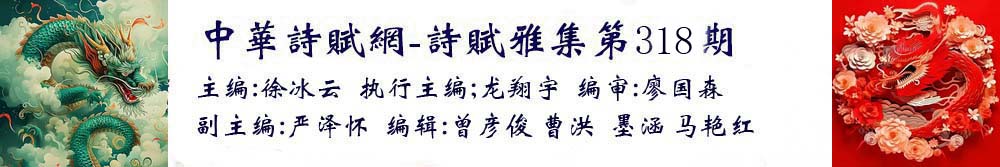 中華詩賦網-詩賦雅集第318期
主编:徐冰云 执行主编;龙翔宇 编审:廖国森
副主编:严泽怀 编辑:曾彦俊 曹洪 墨涵 马艳红